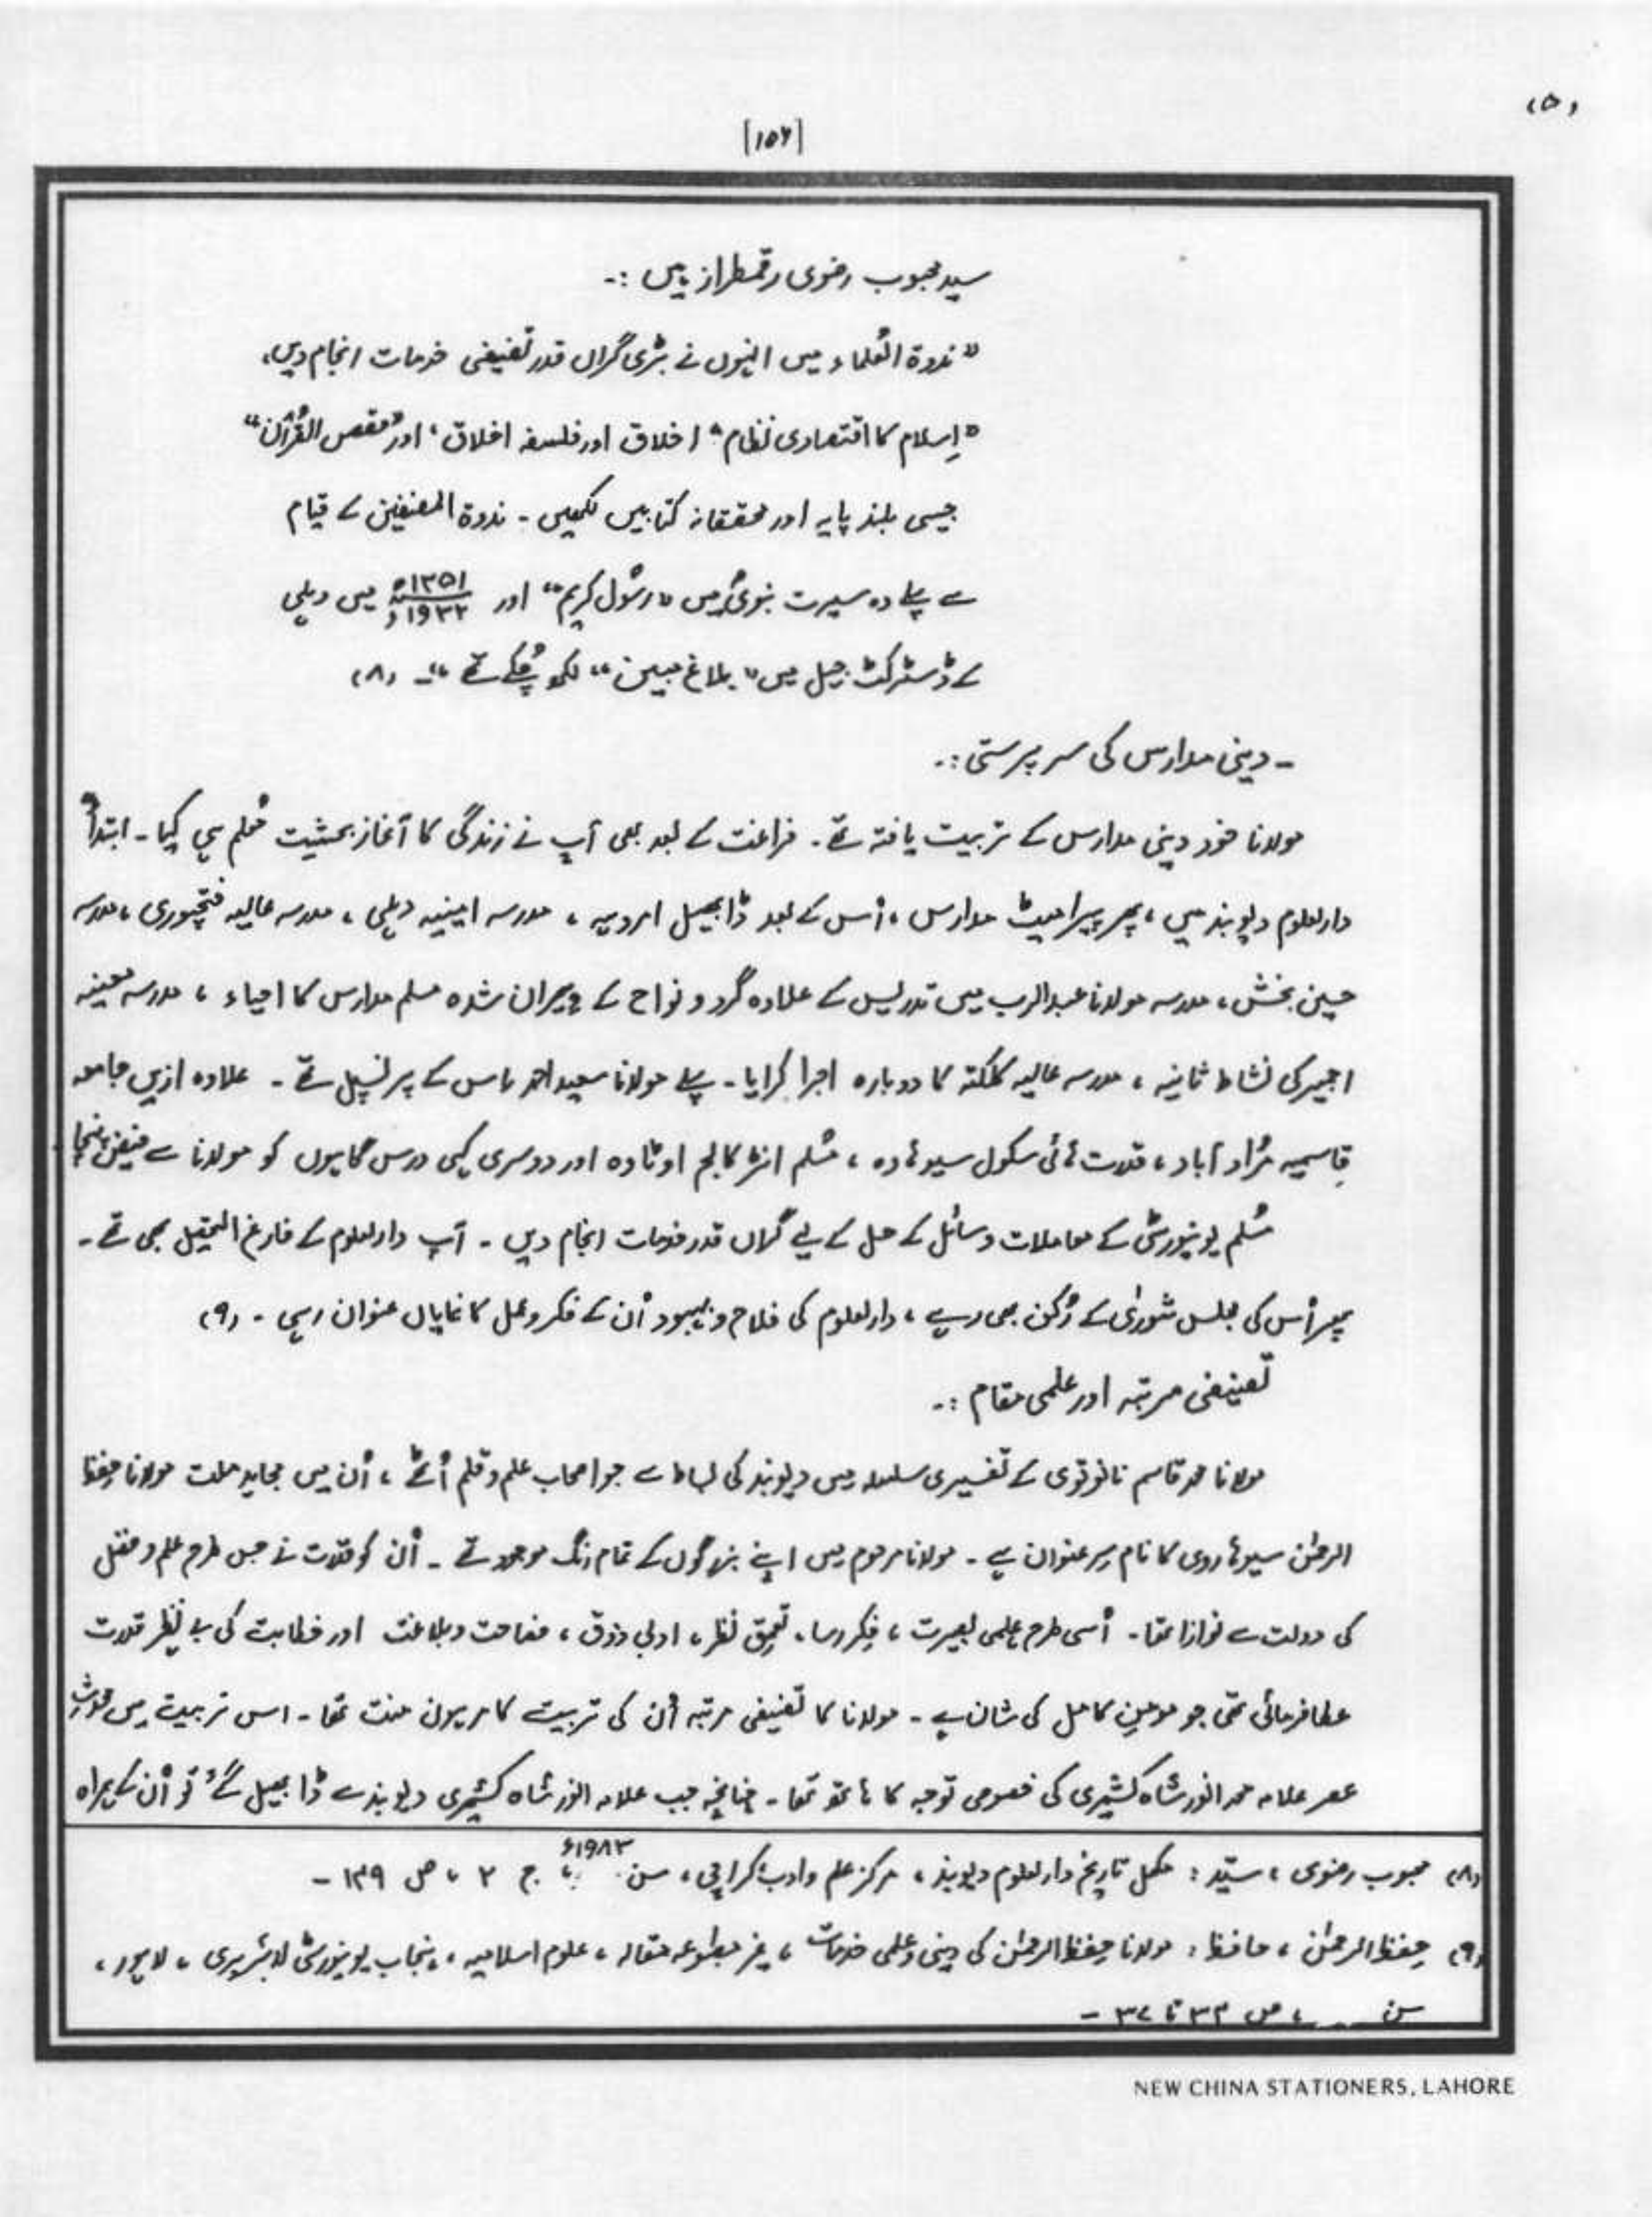 (۵)
[۱۵۶]
سید محبوب رضوی رقمطراز ہیں :۔
"ندوۃ العُلماء میں انہوں نے بڑی گراں قدر تصنیفی خدمات انجام دیں،
"اِسلام کا اقتصادی نظام" اخلاق اور فلسفہ اخلاق، اور "قصص القُرآن"
جیسی بلند پایہ اور محققانہ کتابیں لکھیں ۔ ندوۃ المصنفین کے قیام
سے پہلے وہ سیرت نبویؐ میں "رسُول کریم" اور ۱۳۵۱ھ / ۱۹۳۲ء میں دہلی
کے ڈسٹرکٹ جیل میں "بلاغ مبین" لکھ چُکے تھے"۔ (۸)
۔ دینی مدارس کی سرپرستی :۔
مولانا خود دینی مدارس کے تربیت یافتہ تھے ۔ فراغت کے بعد بھی آپ نے زندگی کا آغاز بحیثیت مُعلم ہی کیا ۔ ابتداً
دارلعلوم دیوبند میں ، پھر پیرامیٹ مدارس ، اُس کے بعد ڈابھیل امروہہ ، مدرسہ امینیہ دہلی ، مدرسہ عالیہ فتحپوری ، مدرسہ
حسین بخش ، مدرسہ مولانا عبدالرب میں تدریس کے علاوہ گرد و نواح کے ویران شدہ مسلم مدارس کا احیاء ، مدرسہ معینہ
اجمیر کی نشاط ثانیہ ، مدرسہ عالیہ کلکتہ کا دوبارہ اجرا کرایا ۔ پہلے مولانا سعید احمد اس کے پرنسپل تھے ۔ علاوہ ازیں جامعہ
قاسمیہ مُراد آباد ، قدرت ہائی سکول سیوہارہ ، مُسلم انٹر کالج اوٹادہ اور دوسری کہی درس گاہوں کو مولانا سے فیض پہنچا
مُسلم یونیورسٹی کے معاملات و سائل کے حل کے لیے گراں قدر خدمات انجام دیں ۔ آپ دارلعلوم کے فارغ التحصیل بھی تھے ۔
پھر اُس کی مجلس شوریٰ کے رُکن بھی رہے ، دارلعلوم کی فلاح و بہبود اُن کے فکر و عمل کا نمایاں عنوان رہی ۔ (۹)
تصنیفی مرتبہ اور علمی مقام :۔
مولانا محمد قاسم نانوتوی کے تفسیری سلسلہ میں دیوبند کی بساط سے جو اصحاب علم و قلم اُٹھے ، اُن میں مجاہد ملت مولانا حفظ
الرحمٰن سیوہاروی کا نام سرِ عنوان ہے ۔ مولانا مرحوم میں اپنے بزرگوں کے تمام رنگ موجود تھے ۔ اُن کو قدرت نے جس طرح علم و فضل
کی دولت سے نوازا تھا ۔ اُسی طرح علمی بصیرت ، فکرِ رسا ، تعمق نظر ، ادبی ذوق ، فصاحت و بلاغت اور خطابت کی بے نظیر قدرت
عطا فرمائی تھی جو مومنِ کامل کی شان ہے ۔ مولانا کا تصنیفی مرتبہ اُن کی تربیت کا مرہون منت تھا ۔ اس تربیت میں محدثِ
عصر علامہ محمد انور شاہ کشمیری کی خصوصی توجہ کا ہاتھ تھا ۔ چنانچہ جب علامہ انور شاہ کشمیری دیوبند سے ڈابھیل گئے تو اُن کے ہمراہ
(۸) محبوب رضوی ، سیّد : مکمل تاریخ دارلعلوم دیوبند ، مرکز علم و ادب کراچی ، سن ۱۹۸۳ء ، ج ۲ ، ص ۱۳۹ ۔
(۹) حفظ الرحمٰن ، حافظ : مولانا حفظ الرحمٰن کی دینی و علمی خدمات ، غیر مطبوعہ مقالہ ، علوم اسلامیہ ، پنجاب یونیورسٹی لائبریری ، لاہور ،
سن ، ص ۳۳ تا ۳۷ ۔
NEW CHINA STATIONERS, LAHORE